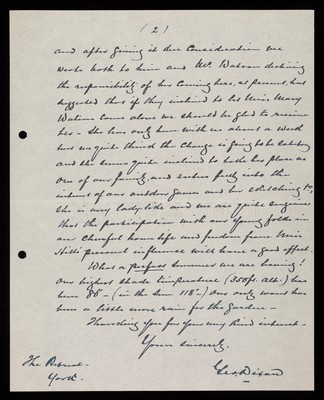 ( 2 )
and after giving it due Consideration we
wrote both to him and Mr. Watson declining
the responsibility of her Coming here, at present, but
suggested that if they inclined to let Miss Mary
Watson come alone we should be glad to receive
her - She has only been with us about a week
but we quite think the Change is going to be
and she seems quite inclined to take her place as
one of our family, and enters fully into the
interest of our outdoor games and her Sketching &c,
She is very ladylike and we are quite sanguine
that the participation with our young folks in
our cheerful home life and freedom from Miss
Hill's personal influence will have a good effect.
What a perfect Summer we are having!
Our highest shade temperature (350 ft. alt.) has
been 86° - (in the Sun 118°) our only want has
been a little more rain for the Garden -
Thanking you for your very Kind interest -
Yours sincerely,
Geo. Dixon
The Retreat -
York.